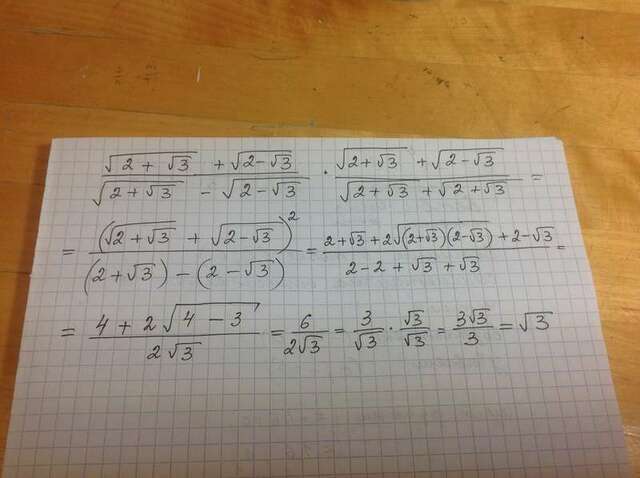 (√(2 + √3) + √(2-√3))/(√(2 + √3) - √(2 - √3)) · (√(2+√3) + √(2-√3))/(√(2 + √3 + √(2 + √3)) =
= (√(2 + √3) + √(2-√3))²/((2+√3) - (2-√3)) = (2+√3 + 2√((2+√3)(2-√3)) + 2-√3)/(2-2+√3 + √3) =
= (4 + 2√(4 - 3))/(2√3) = 6/(2√3) = 3/√3 · √3/√3 = 3√3/3 = √3